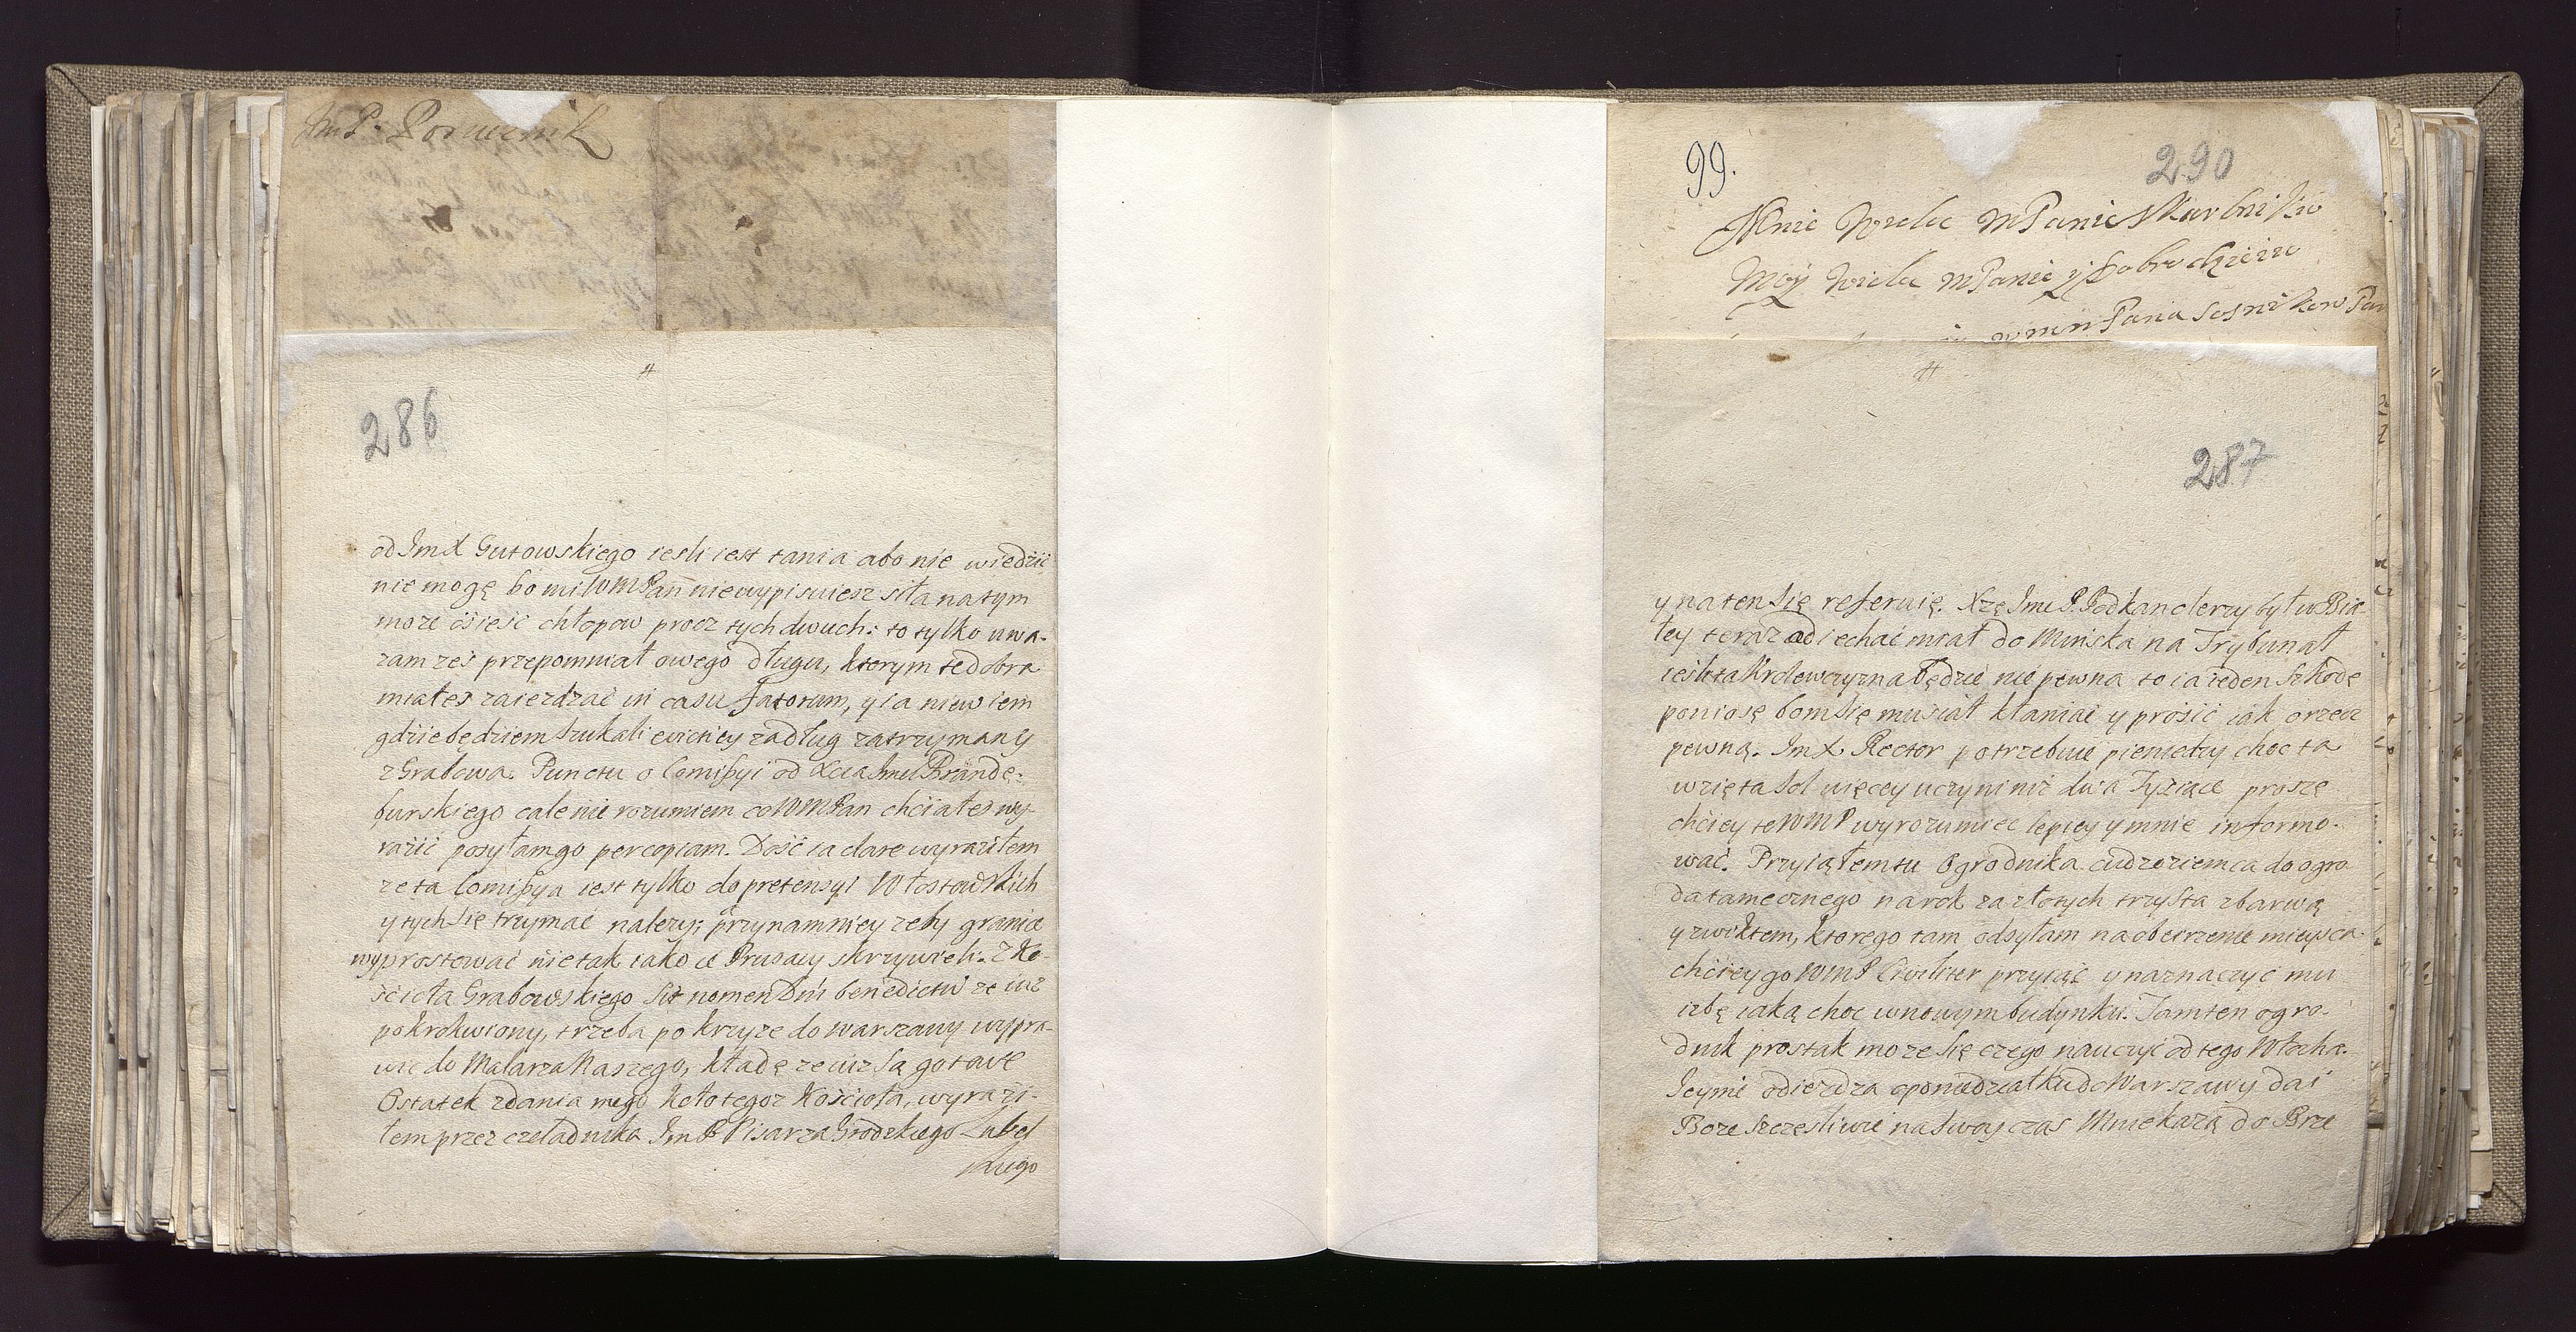 Im P. Porucznik
286
od Im X Gutowskiego iesli iest tania abo nie wiedzić
nie mogę bo mi WMPan nie wypisuiesz siła na tym
moze ośieść chłopow procz tych dwuch: to tylko uwa-
zam zes przepomniał owego długu, ktorym te dobra
miałes zaiezdzać in casu fatorum, y ia niewiem
gdzie będziem szukali evictiey za dług zatrzymany
z Grabowa. Punctu o Comissyi od Xcia Imci Brande-
burskiego cale nie rozumiem co WMPan chciałes wy-
razić posyłam go per copiam. Dość ia clare wyraziłem
ze ta Comissya iest tylko do pretensyi Włostowskich
y tych się trzymać nalezy; przynamniey zeby granice
wyprostować nie tak iako ie Prusacy skrzywieli. Z Ko-
ścioła Grabowskiego Sit nomen Dni benedictu ze iuz
pokrokwiony, trzeba po krzyze do Warszawy wypra-
wic do Malarza Naszego, kładę ze iuz są gotowe
Ostatek zdania mego koło tegoz Kościoła, wyrazi-
łem przez czeladnika Im P Pisarza Grodzkiego Lubel
skiego
99.
290
Mnie Wielce MPanie Skarbniku
Moy Wielce MPanie y Dobrodzieiu
Pana
287
y na ten się referuię. Xzę Imc P. Podkanclerzy był w Bia-
łey teraz odiechać miał do Minska na Trybunał
iesli ta Krolewczyzna będzie nie pewna to ia ieden szkodę
poniosę bom się musiał kłaniać y prosić iak o rzecz
pewną. Im X. Rector potrzebuie pieniedzy choc ta
wzięta sol więcey uczyni niz dwa Tysiące proszę
chciey te WMP wyrozumiec lepiey y mnie informo-
wać. Przyiąłem tu Ogrodnika cudzoziemca do ogro
da tamecznego na rok za złotych trzysta z barwą
y z wiktem, ktorego tam odsyłam na obeirzenie mieysca
chciey go WMP Civiliter przyiąć y naznaczyc mu
izbę iaką choc w nowym budynku. Tamten ogro-
dnik prostak moze się czego nauczyć od tego Włocha.
Ieymć odiezdza w poniedziałek do Warszawy dai
Boze szczęsliwie na swoy czas Mnie kazą do Brze